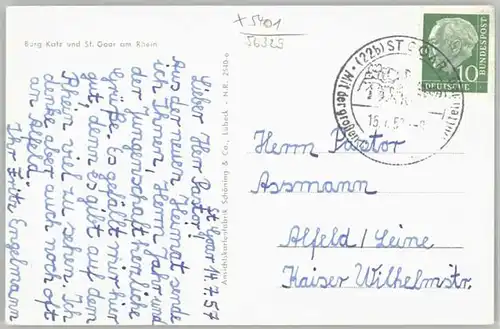 Burg Katz und St. Goar am Rhein
+ 5401
56329
St. Goar 14.7.57
Lieber Herr Pastor!
Aus der neuen Heimat sende
ich Ihnen, Herrn Jahr und
der Jungenschaft herzliche
Grüße. Es gefällt mir hier
gut, denn es gibt auf dem
Rhein viel zu sehen. Ich
denke aber auch noch oft
an Alfeld.
Ihr Fritz Engelmann
Ansichtskartenfabrik Schöning & Co., Lübeck
(22b) ST GOAR
Mit der großen
DEUTSCHE
BUNDESPOST
10
Herrn Pastor
Assmann
Alfeld / Leine
Kaiser Wilhelmstr.